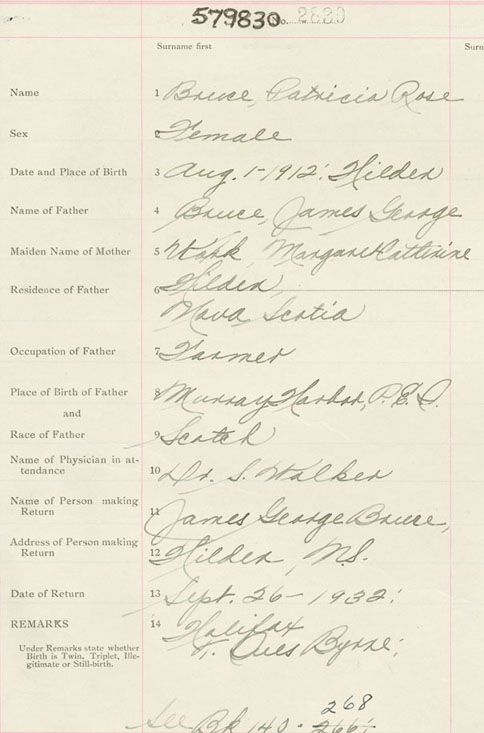 579830 No. 2830
Surname first
Surn
Name 1 Bruce, Patricia Rose
Sex 2 Female
Date and Place of Birth 3 Aug. 1-1912. Hilden
Name of Father 4 Bruce, James George
Maiden Name of Mother 5 Work, Margaret Catherine
Residence of Father 6 Hilden,
Nova Scotia
Occupation of Father 7 Farmer
Place of Birth of Father 8 Murray Harbor, P.E.I.
and
Race of Father 9 Scotch
Name of Physician in at-
tendance 10 Dr. S. Walker
Name of Person making
Return 11 James George Bruce,
Address of Person making
Return 12 Hilden, N.S.
Date of Return 13 Sept. 26-1932.
REMARKS 14 Halifax
Byrne.
Under Remarks state whether
Birth is Twin, Triplet, Ille-
gitimate or Still-birth.
268
See Bk 140. 266